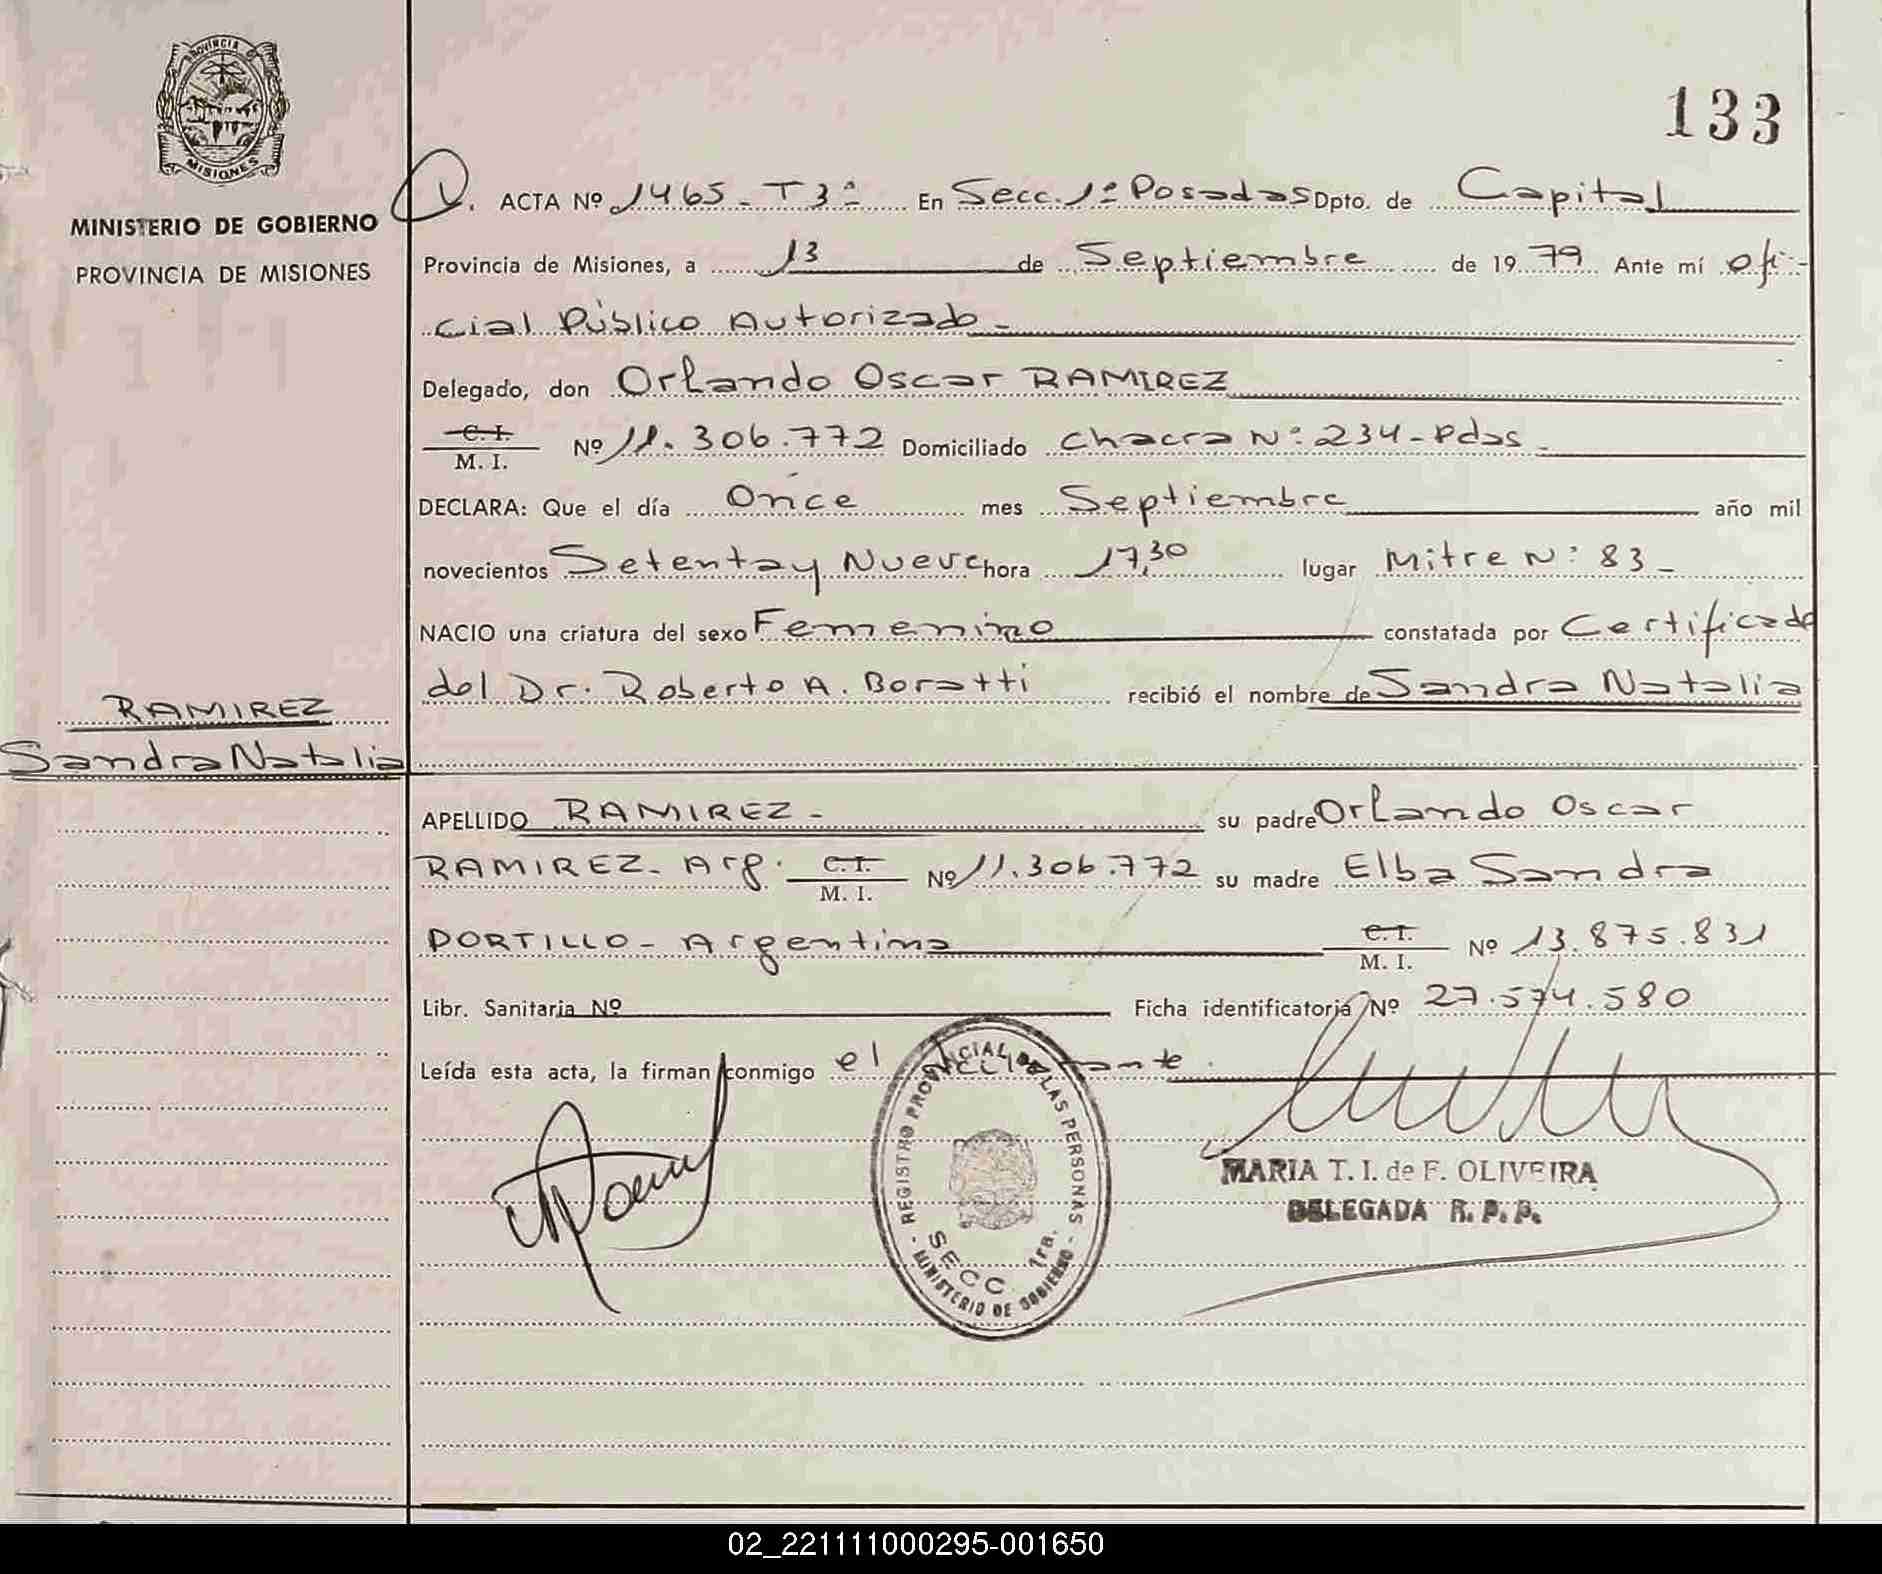 133
PROVINCIA
MISIONES
MINISTERIO DE GOBIERNO
PROVINCIA DE MISIONES
ACTA Nº 1465 - T 3º En Secc. 1º Posadas Dpto. de Capital
Provincia de Misiones, a 13 de Septiembre de 1979 Ante mí ofi-
cial Público Autorizado -
Delegado, don Orlando Oscar RAMIREZ
C. I. M. I. Nº 11.306.772 Domiciliado Chacra Nº 234 - Pdas -
DECLARA: Que el día Once mes Septiembre año mil
novecientos Setenta y Nueve hora 17,30 lugar Mitre Nº 83 -
NACIO una criatura del sexo Femenino constatada por Certificado
del Dr. Roberto A. Boratti recibió el nombre de Sandra Natalia
RAMIREZ
Sandra Natalia
APELLIDO RAMIREZ - su padre Orlando Oscar
RAMIREZ - Arg. C. I. M. I. Nº 11.306.772 su madre Elba Sandra
PORTILLO - Argentina C. I. M. I. Nº 13.875.831
Libr. Sanitaria Nº Ficha identificatoria Nº 27.574.580
Leída esta acta, la firman conmigo el
REGISTRO PROVINCIAL DE LAS PERSONAS
SECC. 1ra.
- MINISTERIO DE GOBIERNO -
MARIA T. I. de F. OLIVEIRA
DELEGADA R. P. P.
02_221111000295-001650